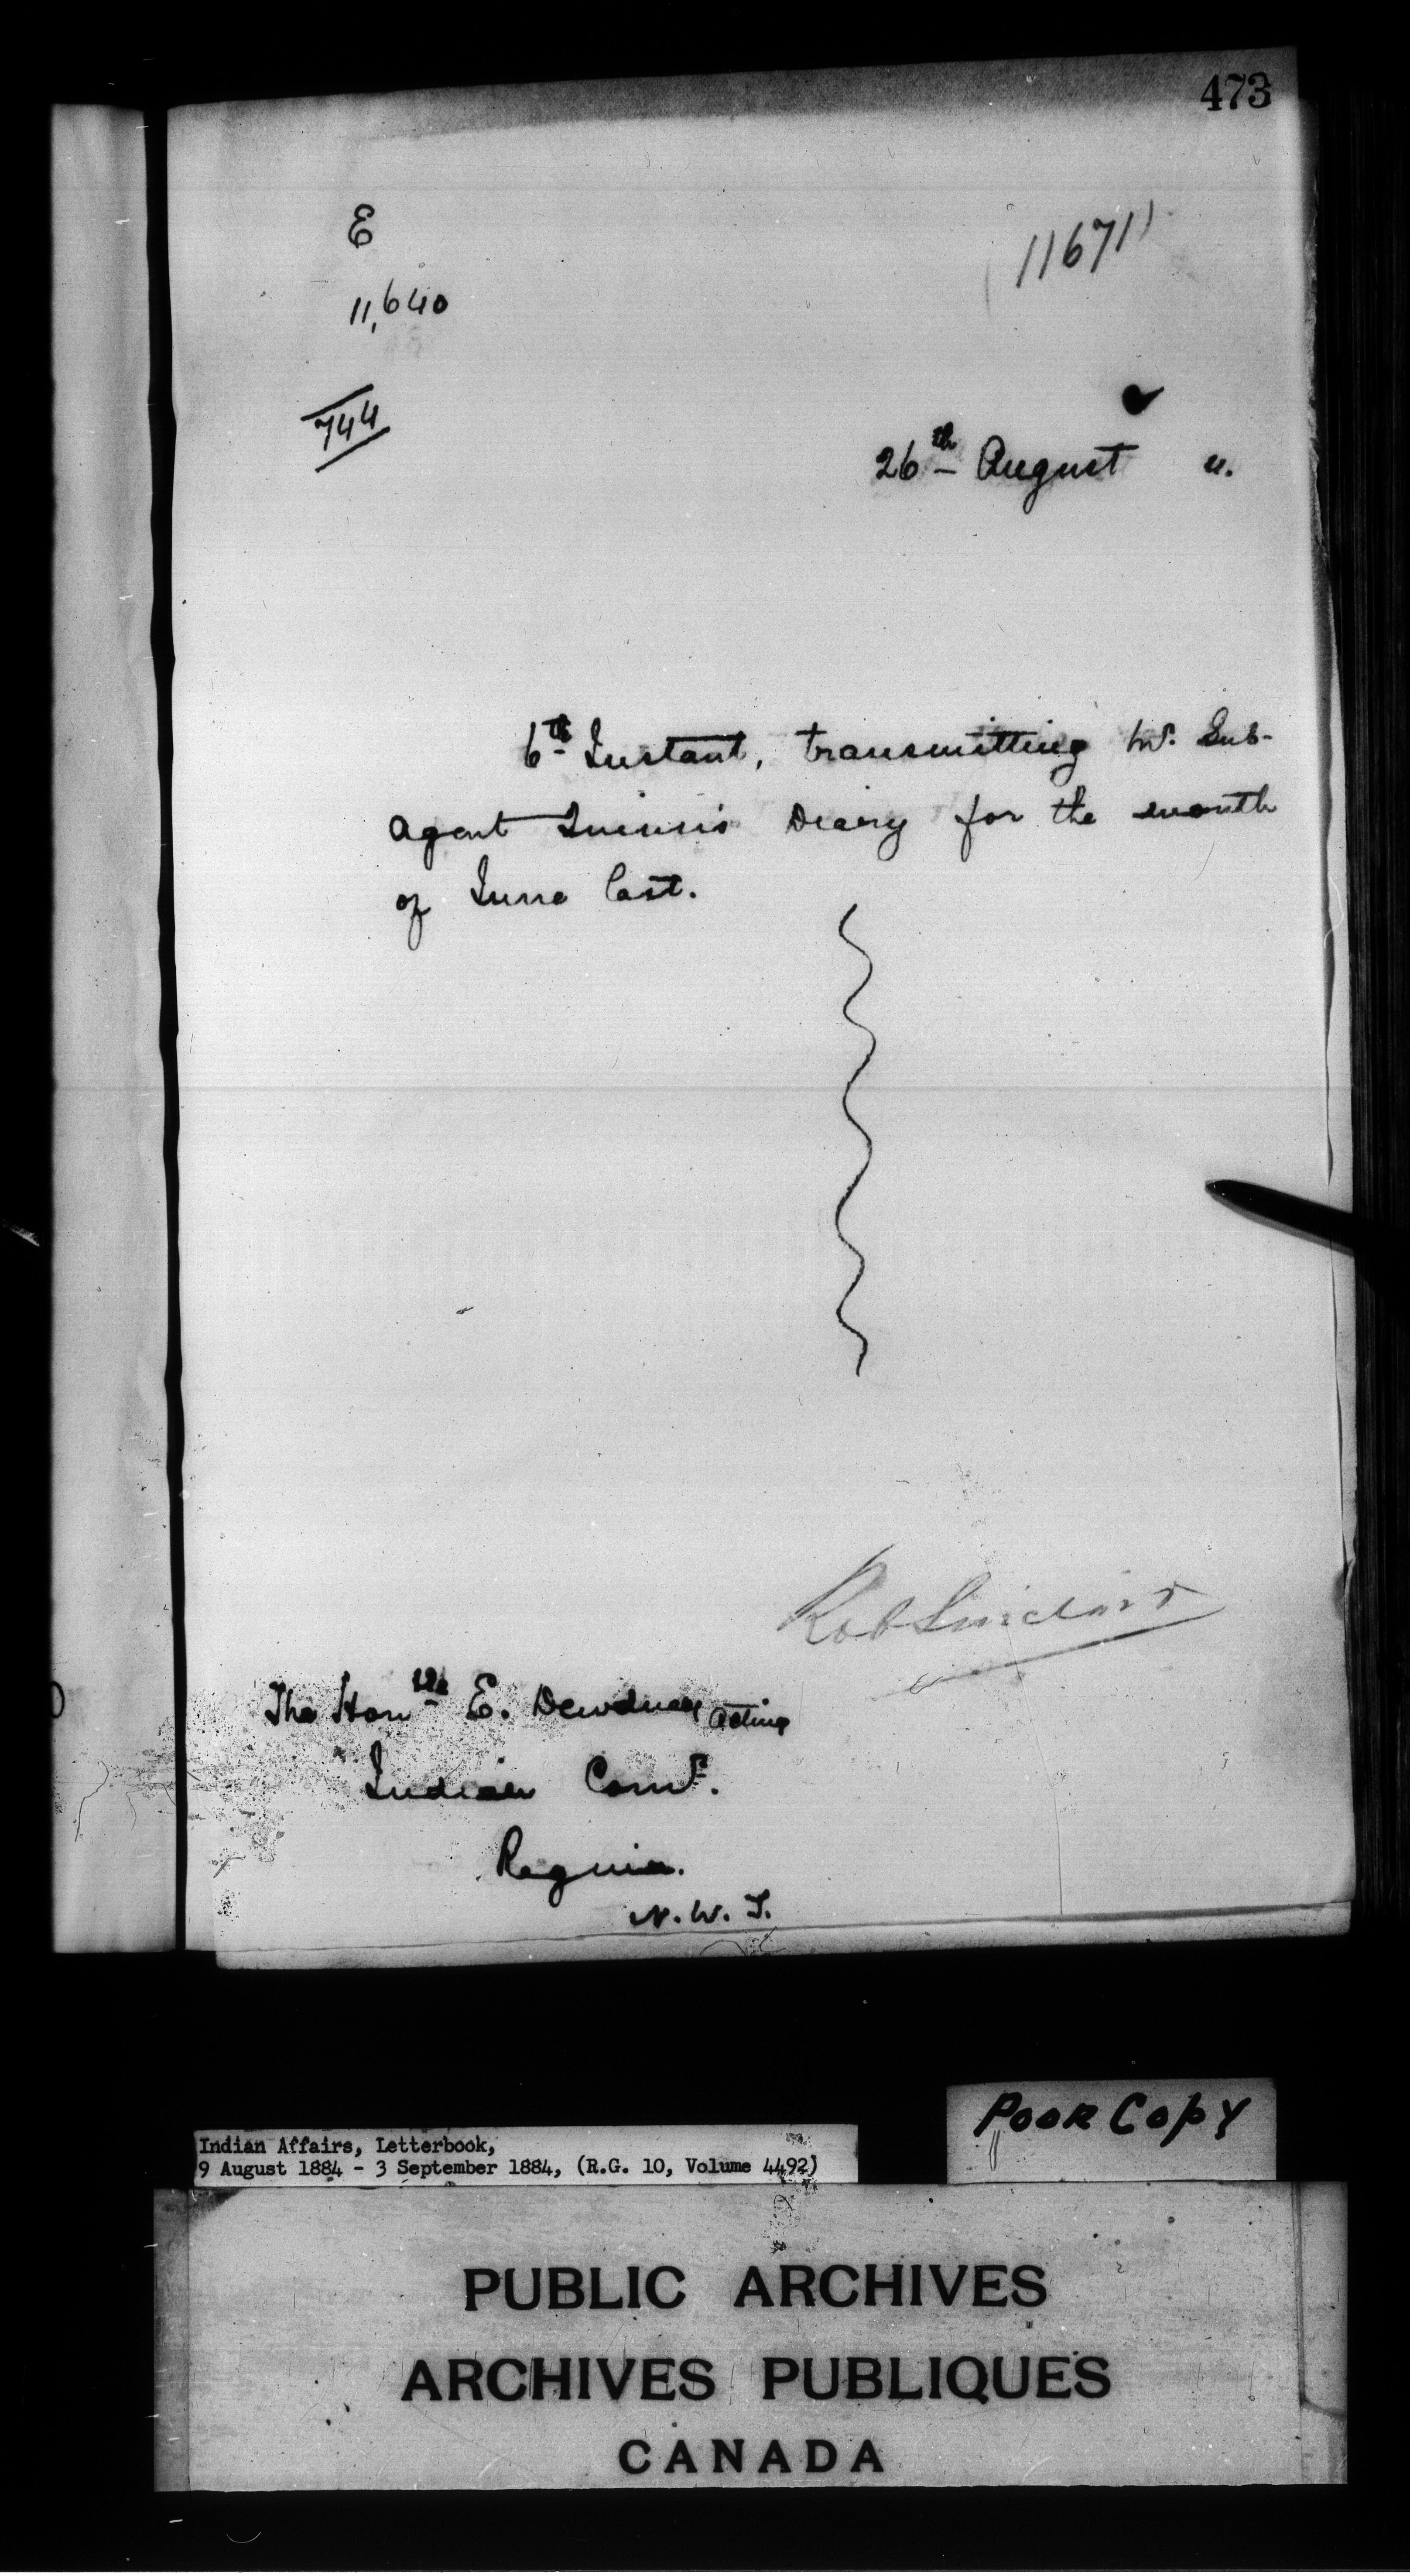 473
E
11671
11,640
744
26th August 4.
6th Instant, transmitting Mr. Sub-
Agent Quinn's Diary for the month
of June last.
Rob Sinclair
The Honble E. Dewdney Acting
Indian Comr.
Regina.
N.W.T.
Poor Copy
Indian Affairs, Letterbook,
9 August 1884 - 3 September 1884, (R.G. 10, Volume 4492)
PUBLIC ARCHIVES
ARCHIVES PUBLIQUES
CANADA